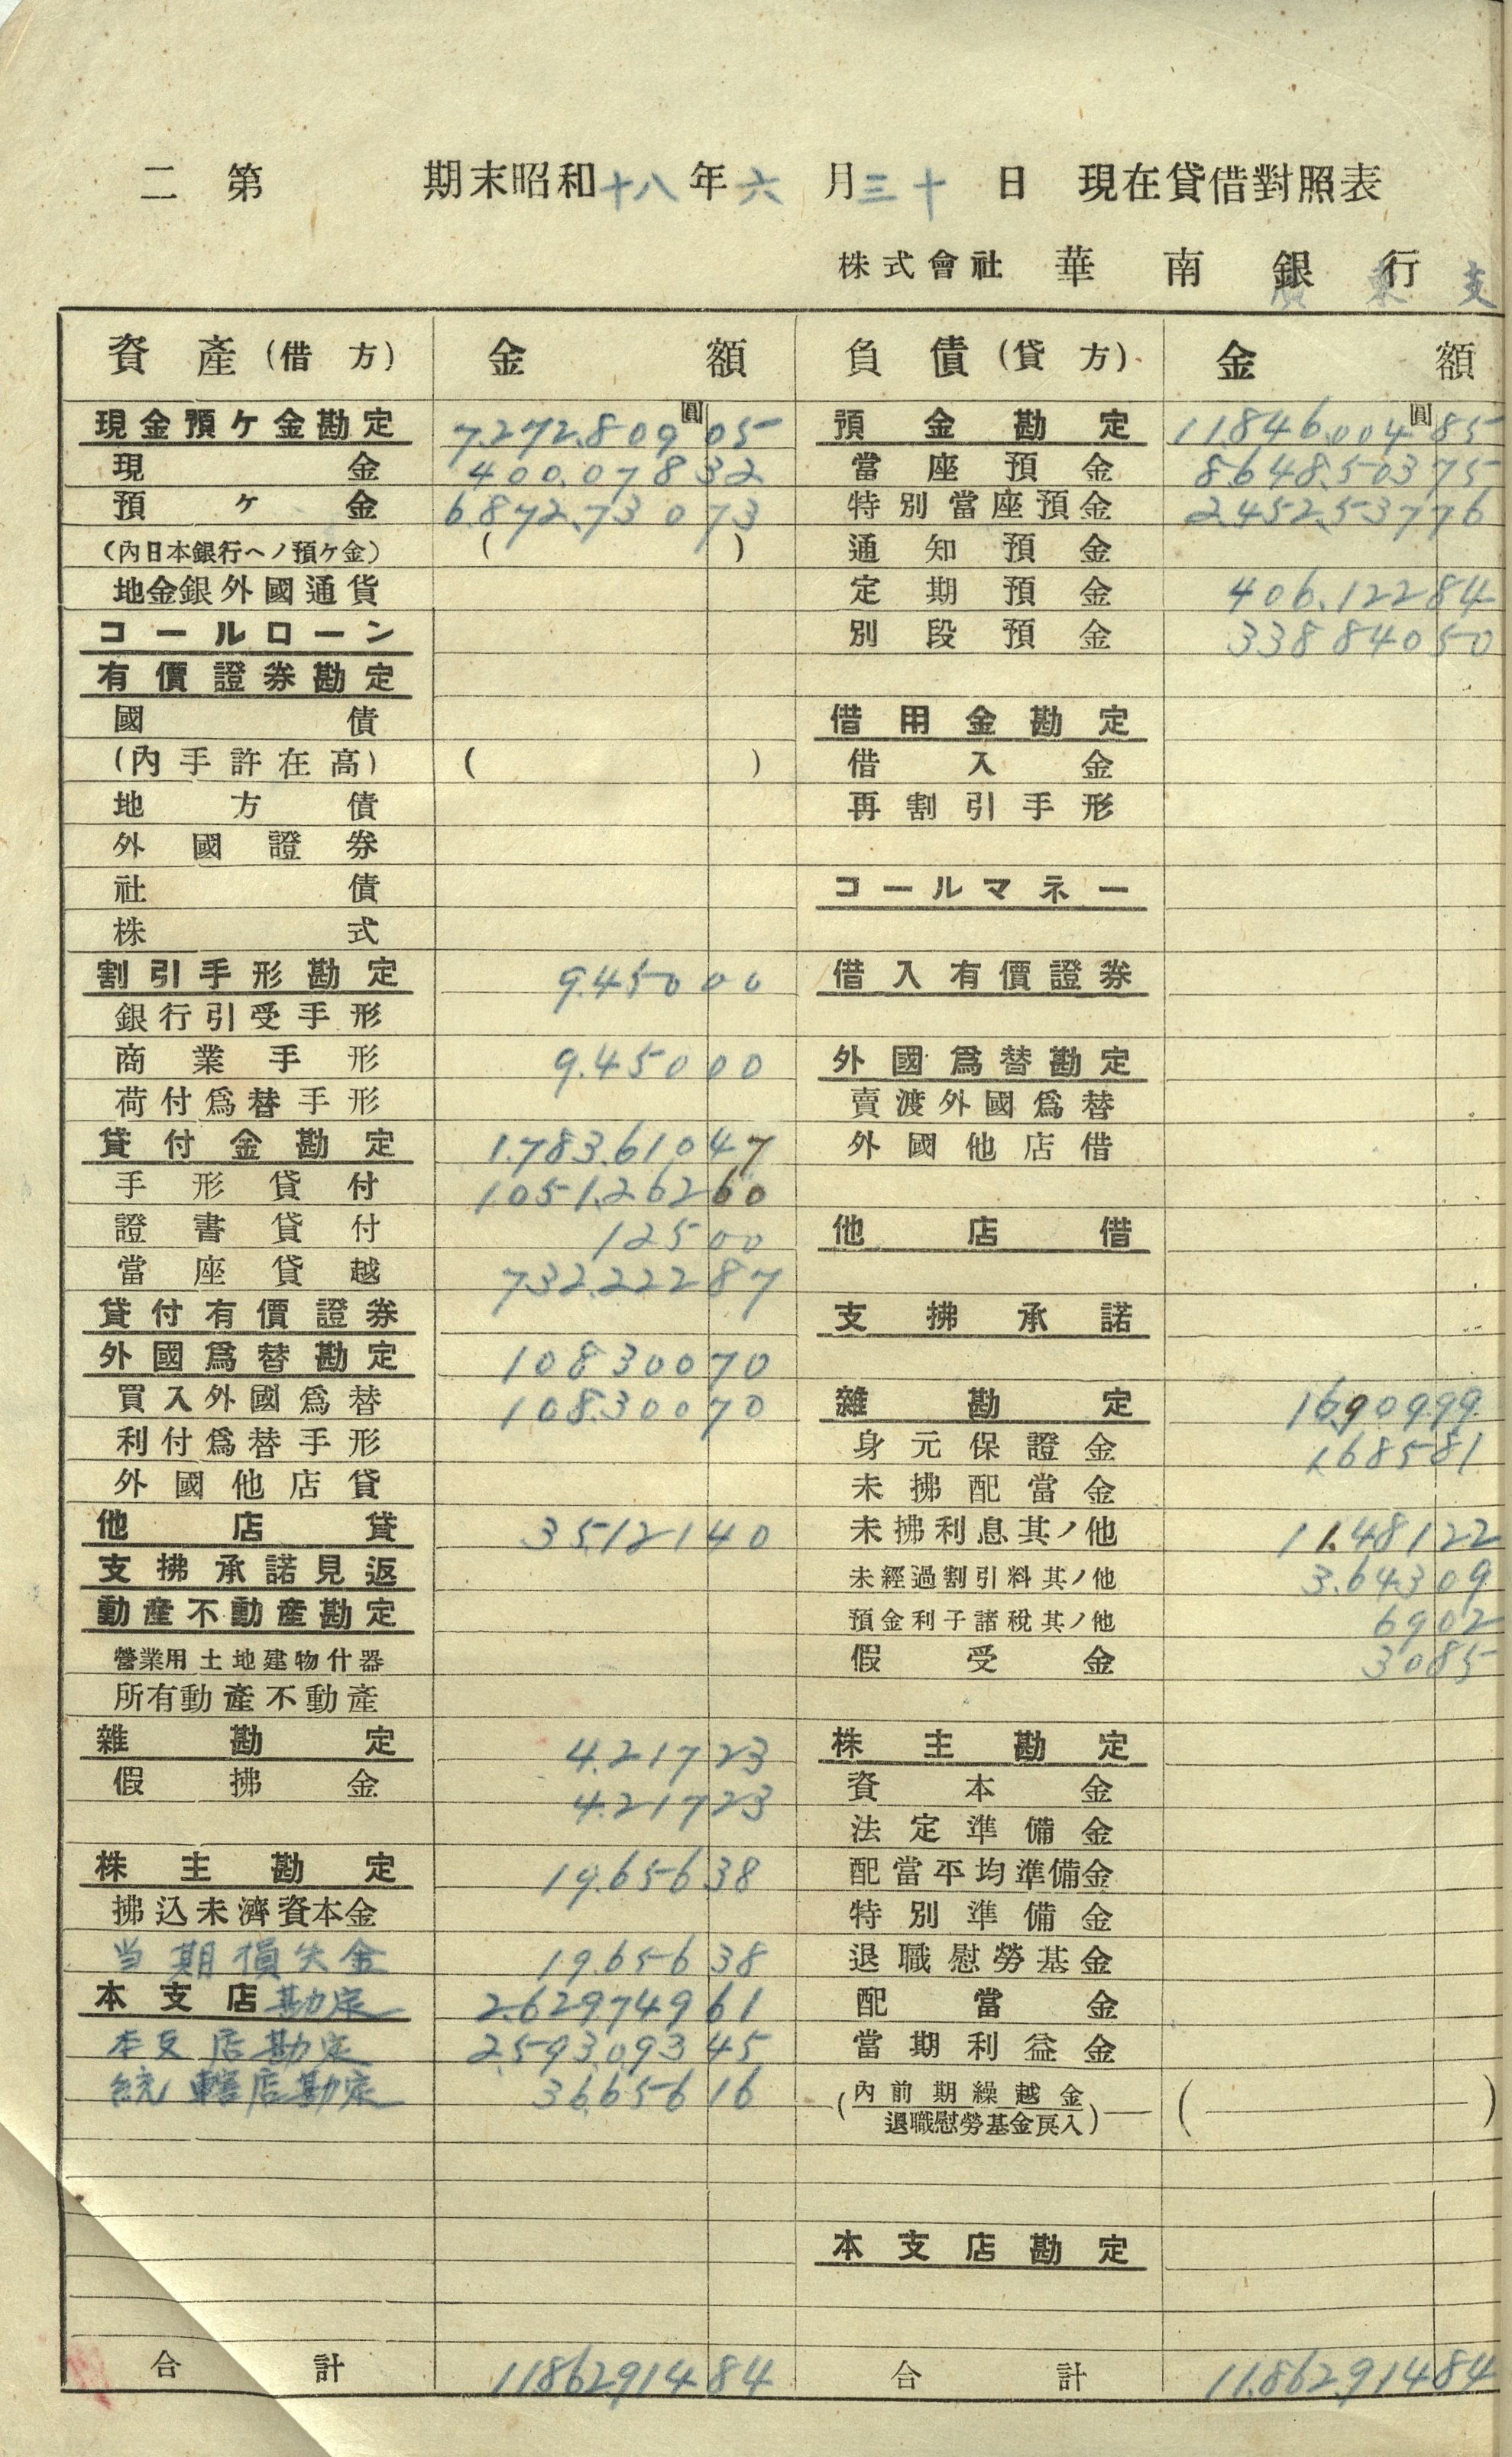 二 第 期末昭和十八年六月三十日 現在貸借對照表
株式會社 華南銀行 廣東支
資產(借方) 金額 負債(貸方) 金額
現金預ケ金勘定 7.272.809圓05 預金勘定 11.846.004圓85
現金 400.078 32 當座預金 8.648.503 75
預ケ金 6.872.730 73 特別當座預金 2.452.537 76
(內日本銀行ヘノ預ケ金) ( ) 通知預金
地金銀外國通貨 定期預金 406.122 84
コールローン 別段預金 338840 50
有價證券勘定
國債 借用金勘定
(內手許在高) ( ) 借入金
地方債 再割引手形
外國證券
社債 コールマネー
株式
割引手形勘定 9.450 00 借入有價證券
銀行引受手形
商業手形 9.450 00 外國爲替勘定
荷付爲替手形 賣渡外國爲替
貸付金勘定 1.783.610 47 外國他店借
手形貸付 1.051.262 60
證書貸付 125 00 他店借
當座貸越 732.222 87
貸付有價證券 支拂承諾
外國爲替勘定 108300 70
買入外國爲替 108.300 70 雜勘定 16.909 99
利付爲替手形 身元保證金 1.685 81
外國他店貸 未拂配當金
他店貸 35.121 40 未拂利息其ノ他 11.481 22
支拂承諾見返 未經過割引料其ノ他 3.643 09
動產不動產勘定 預金利子諸稅其ノ他 69 02
營業用土地建物什器 假受金 30 85
所有動產不動產
雜勘定 4.217 23 株主勘定
假拂金 4.217 23 資本金
法定準備金
株主勘定 19.656 38 配當平均準備金
拂込未濟資本金 特別準備金
当期損失金 19.656 38 退職慰勞基金
本支店勘定 2.629.749 61 配當金
本支店勘定 2.593.093 45 當期利益金
統轄店勘定 36.656 16 (內前期繰越金 退職慰勞基金戾入) ( )
本支店勘定
合計 11.862.914 84 合計 11.862.914 84